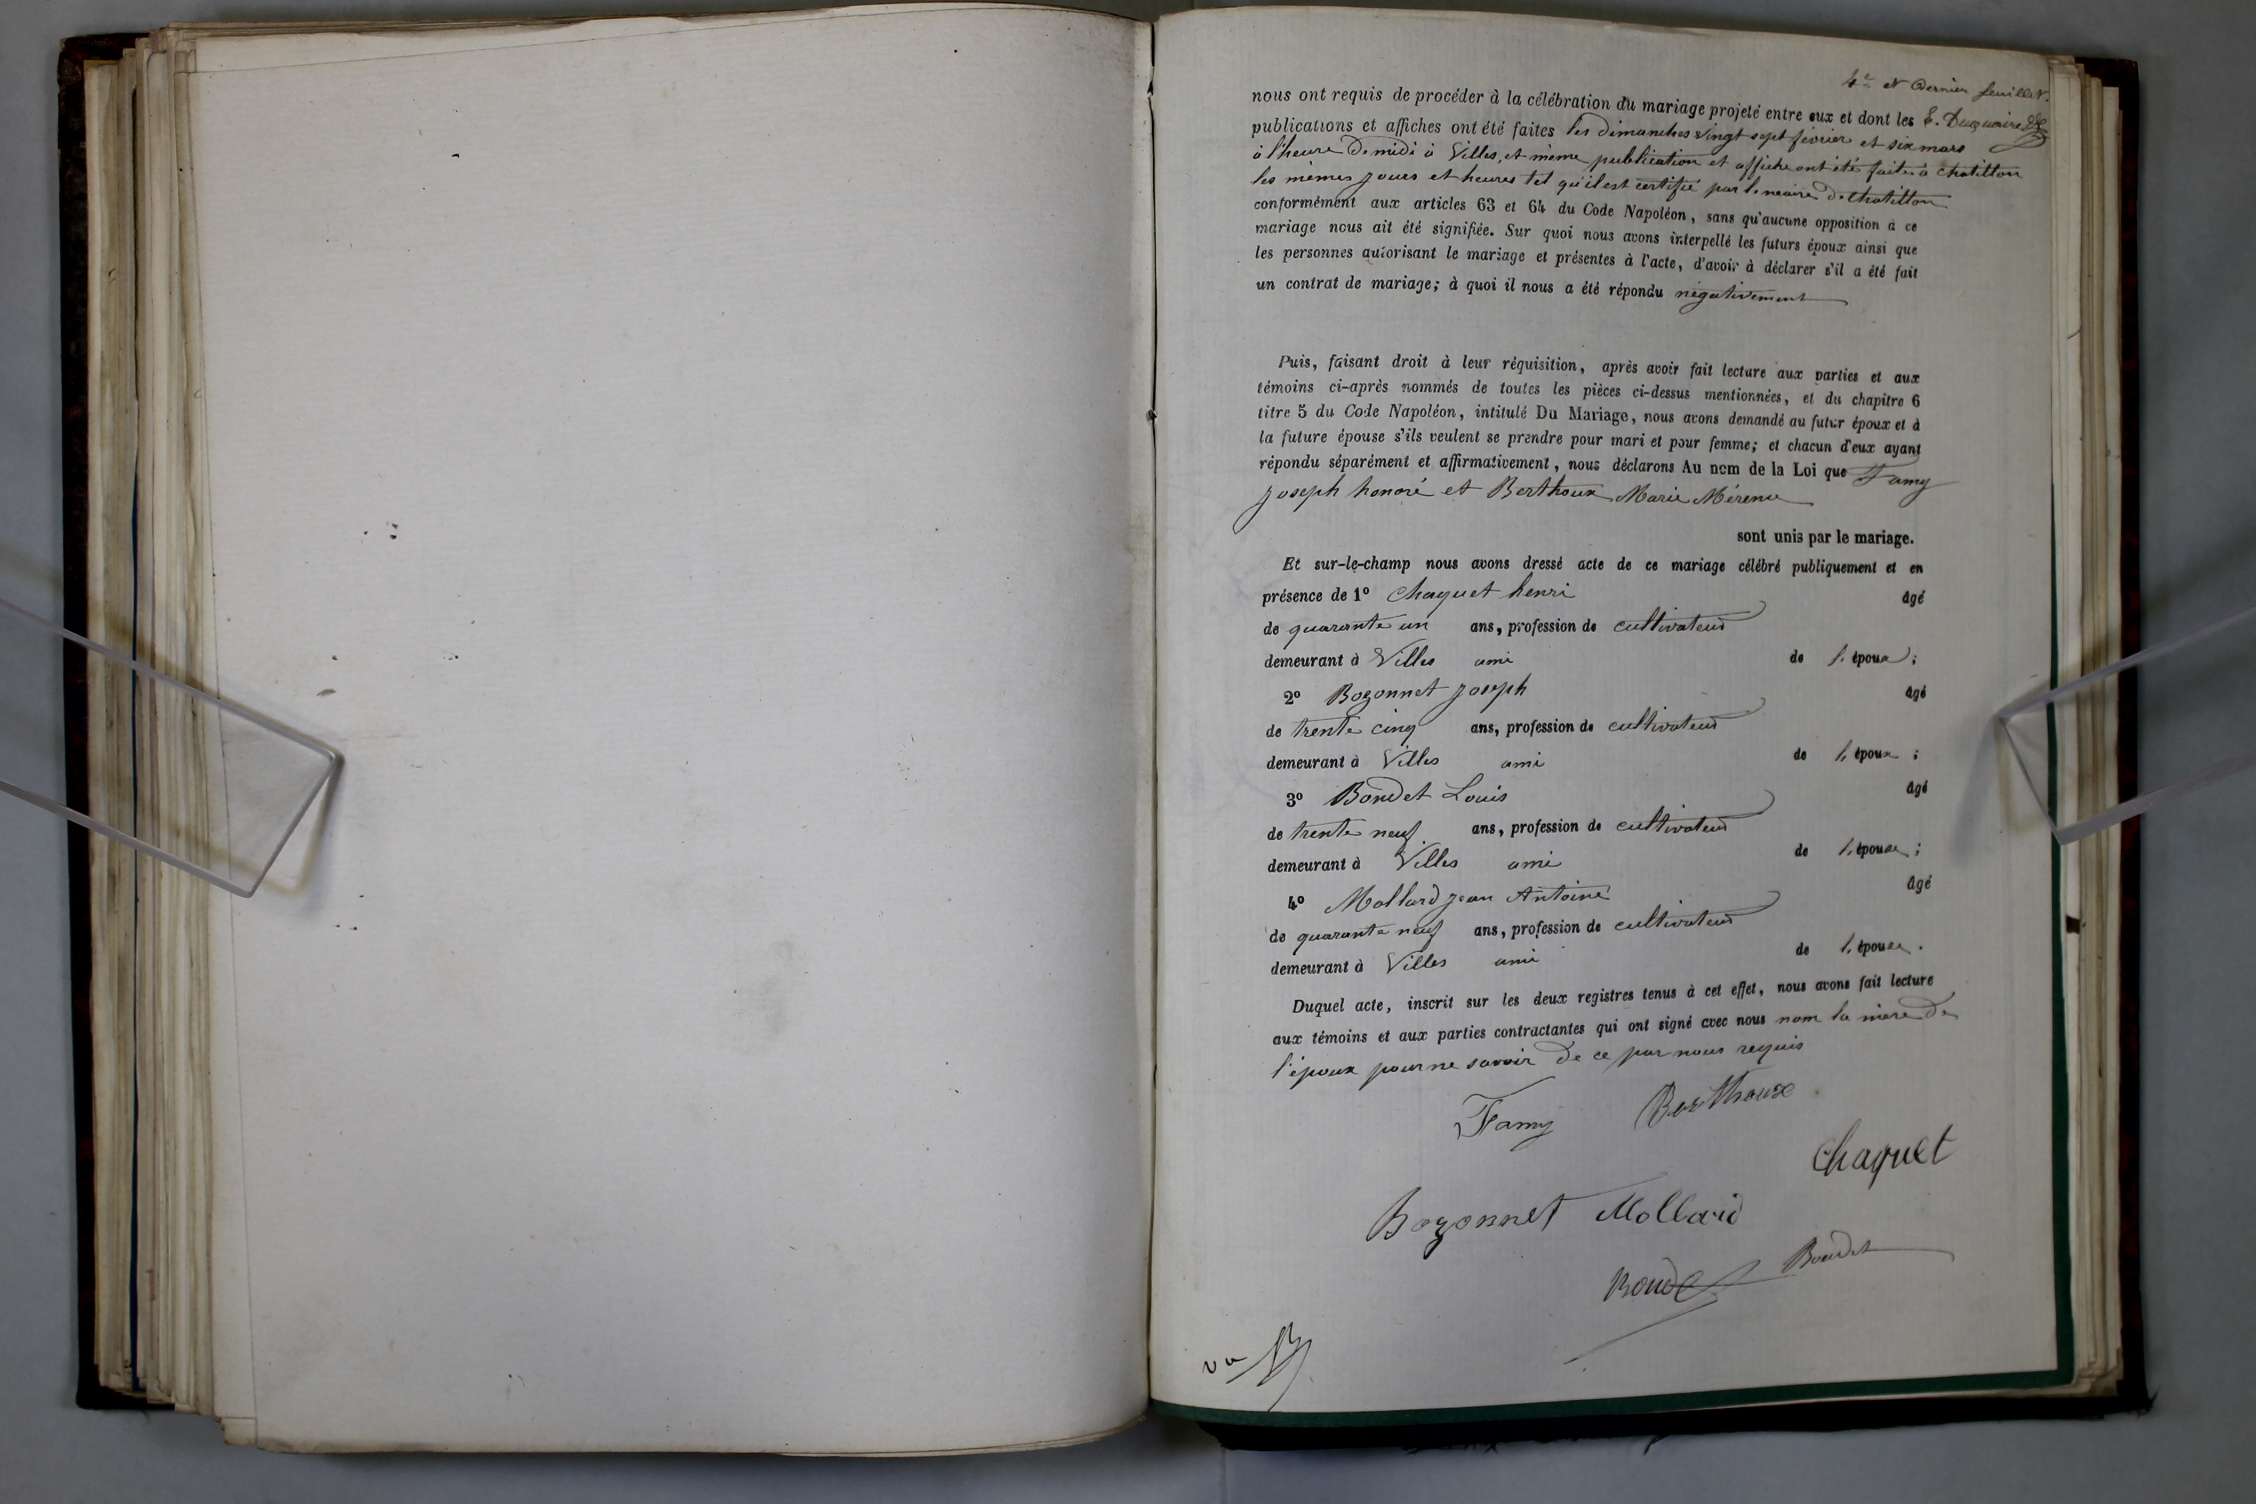 4e et Dernier feuillet.
nous ont requis de procéder à la célébration du mariage projeté entre eux et dont les
publications et affiches ont été faites les dimanches vingt sept février et six mars
à l'heure de midi à Villes, et même publication et affiche ont été faite à chatillon
les mêmes jours et heures tel qu'il est certifié par le maire de chatillon
conformément aux articles 63 et 64 du Code Napoléon, sans qu'aucune opposition à ce
mariage nous ait été signifiée. Sur quoi nous avons interpellé les futurs époux ainsi que
les personnes autorisant le mariage et présentes à l'acte, d'avoir à déclarer s'il a été fait
un contrat de mariage; à quoi il nous a été répondu négativement
Puis, faisant droit à leur réquisition, après avoir fait lecture aux parties et aux
témoins ci-après nommés de toutes les pièces ci-dessus mentionnées, et du chapitre 6
titre 5 du Code Napoléon, intitulé Du Mariage, nous avons demandé au futur époux et à
la future épouse s'ils veulent se prendre pour mari et pour femme; et chacun d'eux ayant
répondu séparément et affirmativement, nous déclarons Au nom de la Loi que Famy
Joseph honoré et Berthoux Marie
sont unis par le mariage.
Et sur-le-champ nous avons dressé acte de ce mariage célébré publiquement et en
présence de 1º Chaquet henri âgé
de quarante un ans, profession de cultivateur
demeurant à Villes ami de l'époux ;
2º Bozonnet Joseph âgé
de trente cinq ans, profession de cultivateur
demeurant à Villes ami de l'époux ;
3º Boudet Louis âgé
de trente neuf ans, profession de cultivateur
demeurant à Villes ami de l'épouse ;
4º Mollard Jean Antoine âgé
de quarante neuf ans, profession de cultivateur
demeurant à Villes ami de l'épouse.
Duquel acte, inscrit sur les deux registres tenus à cet effet, nous avons fait lecture
aux témoins et aux parties contractantes qui ont signé avec nous nom la mère de
l'époux pour ne savoir de ce par nous requis
Famy Berthoux
Chaquet
Bozonnet Mollard
Boudet Boudet